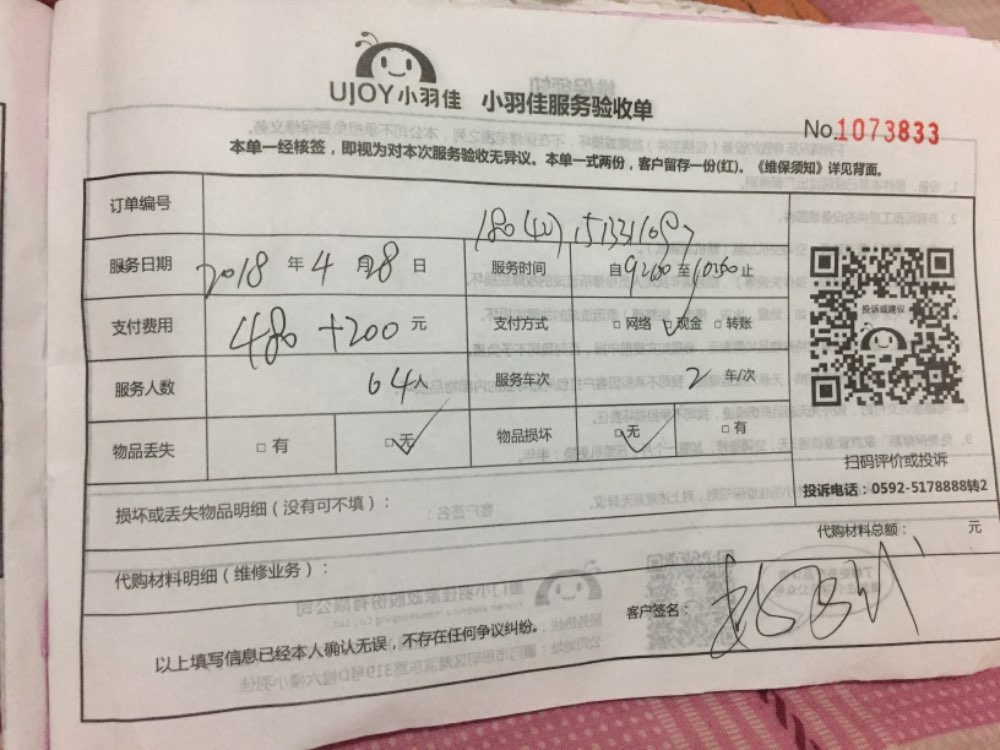 UJOY小羽佳 小羽佳服务验收单
No.1073833
本单一经核签，即视为对本次服务验收无异议。本单一式两份，客户留存一份(红)。《维保须知》详见背面。
订单编号
服务日期 2018 年 4 月 28 日 服务时间 自 至 止
支付费用 480+200 元 支付方式 □网络 □现金 □转账
服务人数 4人 服务车次 2 车/次
物品丢失 □有 □无 物品损坏 □无 □有
投诉或建议
扫码评价或投诉
投诉电话：0592-5178888转2
损坏或丢失物品明细（没有可不填）：
代购材料总额： 元
代购材料明细（维修业务）：
客户签名：
以上填写信息已经本人确认无误，不存在任何争议纠纷。